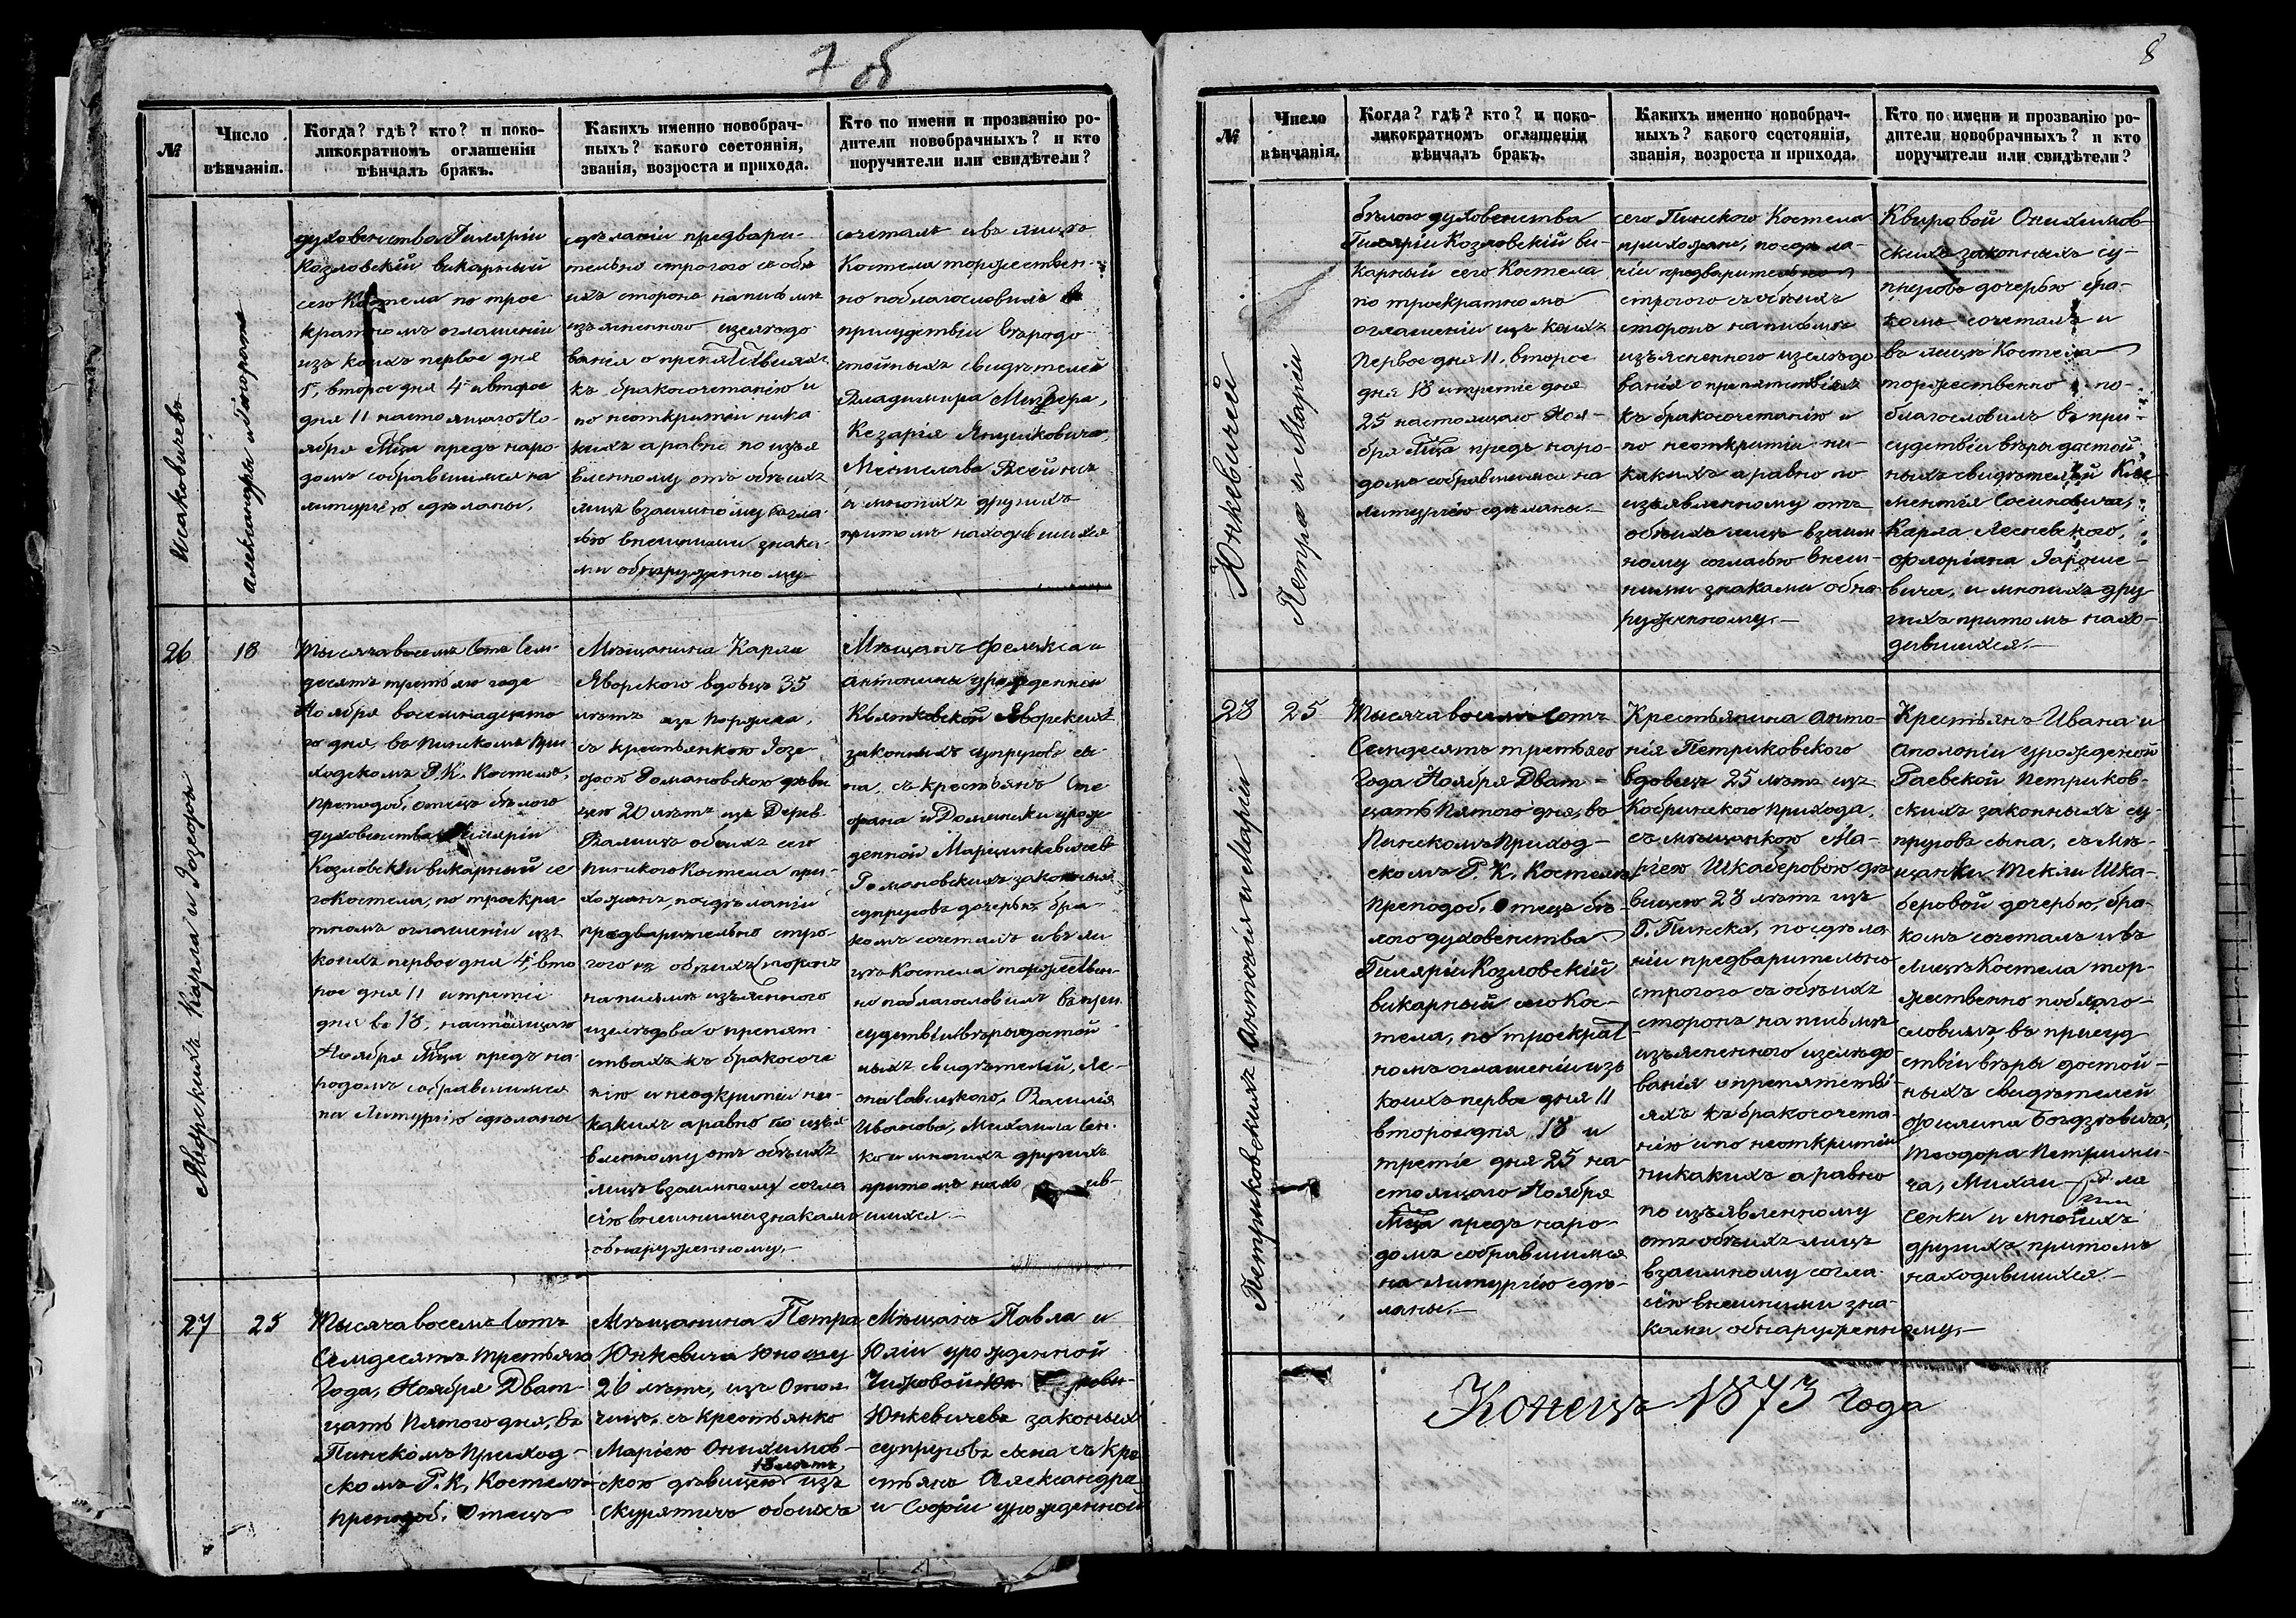 7 об
№
Число
вѣнчанія.
Когда? гдѣ? кто? и поко-
ликократномъ оглашеніи
вѣнчалъ бракъ.
Какихъ именно новобрач-
ныхъ? какого состоянія,
званія, возроста и прихода.
Кто по имени и прозванію ро-
дители новобрачныхъ? и кто
поручители или свидѣтели?
Исаковичевъ
духовенства Гиляріи
Козловскій викарный
сего Костела по трое
кратномъ оглашеніи
изъ коихъ первое дня
1, второе дня 4 и второе
дня 11 настоящаго Но-
ября Мца предъ наро
домъ собравшимся на
литургію сдѣланы.
сдѣланіи предвари-
тельно строгого съ обѣ
ихъ сторонъ на письмѣ
изъясненного изслѣдо
ванія о препятствіяхъ
къ бракосочетанію и
по неоткрытіи ника
кихъ а равно по изъя
вленному отъ обѣихъ
лицъ взаимному согла
сію внешними знака
ми обнаруженному
сочеталъ и въ лицѣ
Костела торжествен-
но поблагословилъ въ
присудствіи вѣродо
стойныхъ свидѣтелей
Владимира
Кезарія Янушковича,
Мстислава
и многихъ другихъ
притомъ находившихся
26
18
Яворскихъ Карла и Іозефы
Тысяча восемь Сотъ Сем-
десятъ третьяго года
Ноября восемнадцато
го дня, въ Пинскомъ При
ходскомъ Р. К. Костелѣ,
Преподоб. отецъ бѣлого
духовенства Гиляріи
Козловскій викарный се
го Костела, по троекра
тномъ оглашеніи изъ
коихъ первое дня 4, вто
рое дня 11 и третіе
дня въ 18, настоящаго
Ноября Мца предъ на-
родомъ собравшимся
на Литургію сдѣланы
Мѣщанина Карла
Яворского вдовца 35
лѣтъ изъ
съ крестьянкою Іозе
фою Романовскою дѣви
цею 20 лѣтъ изъ Дерев.
обоихъ сего
Пинского Костела при-
хожанъ, по сдѣланіи
предварительно стро-
гого съ обѣихъ сторонъ
на письмѣ изъясненного
изслѣдова о препят
ствіяхъ къ бракосоче
нію и неодкрытіи ни-
какихъ а равно по изъя
вленному отъ обѣихъ
лицъ взаимному согла
сію внешними знаками
обнаруженному.—
Мѣщанъ Феликса и
Антонины урожденной
Квятковской Яворскихъ
законныхъ супруговъ сы-
на, съ крестьянъ Сте
фана и Доминики урож
денной Марцинкевичовъ
Романовскихъ законныхъ
супруговъ дочерью, бра-
комъ сочеталъ и въ ли
цѣ Костела торжествен-
но поблагословилъ въ при
судствіи вѣродостой-
ныхъ свидѣтелей, Ле-
она Савицкого, Василія
Иванова, Михаила Сен-
ко и многихъ другихъ
притомъ нахо див-
шихся.—
27
25
Тысяча восемъ Сотъ
Семдесятъ третьяго
Года, Ноября Двад-
цать Пятого дня, въ
Пинскомъ Приход-
скомъ Р. К. Костелѣ
Преподоб. Отецъ
Мѣщанина Петра
Юнкевича Юношу
26 лѣтъ, изъ
съ крестьянко
Маріею Онихимов-
18 лѣтъ
скою дѣвицею изъ
Скурятичъ обоихъ
Мѣщанъ Павла и
Юліи урожденной
Чижовой
Юнкевичевъ законныхъ
супруговъ сына съ кре
стьянъ Александра
и Софіи урожденной
8
№
Число
вѣнчанія.
Когда? гдѣ? кто? и поко-
ликократномъ оглашеніи
вѣнчалъ бракъ.
Какихъ именно новобрач-
ныхъ? какого состоянія,
званія, возроста и прихода.
Кто по имени и прозванію ро-
дители новобрачныхъ? и кто
поручители или свидѣтели?
Юнкевичей
Петра и Маріи
бѣлого духовенства
Гиляріи Козловскій ви-
карный сего Костела
по троекратномъ
оглашеніи изъ коихъ
первое дня 11, второе
дня 18 и третіе дня
25 настоящаго Ноя-
бря Мца предъ наро-
домъ собравшимся на
Литургію сдѣланы.—
сего Пинского Костела
прихожанъ, по сдѣла-
ніи предварительно
строгого съ обѣихъ
сторонъ на письмѣ
изъясненного изслѣдо
ванія о препятствіяхъ
къ бракосочетанію и
по неоткрытіи ни-
какихъ а равно по
изъявленному отъ
обѣихъ лицъ взаим
ному согласію внеш-
ними знаками обна-
руженному.—
Квировой Онихимов-
скихъ законныхъ су-
пруговъ дочерью бра-
комъ сочеталъ и
въ лицѣ Костела
торжественно по-
благословилъ въ при-
судствіи вѣры достой-
ныхъ свидѣтелей Кле-
ментія Сосиновича,
Карла Лесневского,
Флоріана Яроше-
вича, и многихъ дру
гихъ притомъ нахо-
дившихся.—
28
25
Петриковскихъ Антонія и Маріи
Тысяча восемъ Сотъ
Семдесятъ третьяго
Года Ноября Двад-
цать Пятого дня, въ
Пинскомъ Приход-
скомъ Р. К. Костелѣ
Преподоб. Отецъ бѣ-
лого духовенства
Гиляріи Козловскій
викарный сего Кос-
тела, по троекрат
номъ оглашеніи изъ
коихъ первое дня 11
второе дня 18 и
третіе дня 25 на-
стоящаго Ноября
Мца предъ наро-
домъ собравшимся
на Литургію сдѣ-
ланы.—
Крестьянина Анто-
нія Петриковского
вдовецъ 25 лѣтъ изъ
Кобринского Прихода,
съ мѣщанкою Ма-
ріею Шкаберовою дѣ
вицею 28 лѣтъ изъ
Г. Пинска, по сдѣла
ніи предварительно
строгого съ обѣихъ
сторонъ на письмѣ
изъясненного изслѣдо-
ванія о препятстві-
яхъ къ бракосочета-
нію и по неоткрытіи
никакихъ а равно
по изъявленному
отъ обѣихъ лицъ
взаимному согла
сію внешними зна-
ками обнаруженному.—
Крестьянъ Ивана и
Аполоніи урожденной
Гаевской Петриков-
скихъ законныхъ су-
пруговъ сына, съ мѣ-
щанки Текли Шка-
беровой дочерью, бра-
комъ сочеталъ и въ
лицѣ Костела тор-
жественно поблаго-
словилъ, въ присуд
ствіи вѣры достой-
ныхъ свидѣтелей
Филипа
Теодора
ча, Михаи—ла
Сенки и многихъ
другихъ, притомъ
находившихся.—
Конецъ 1873 года